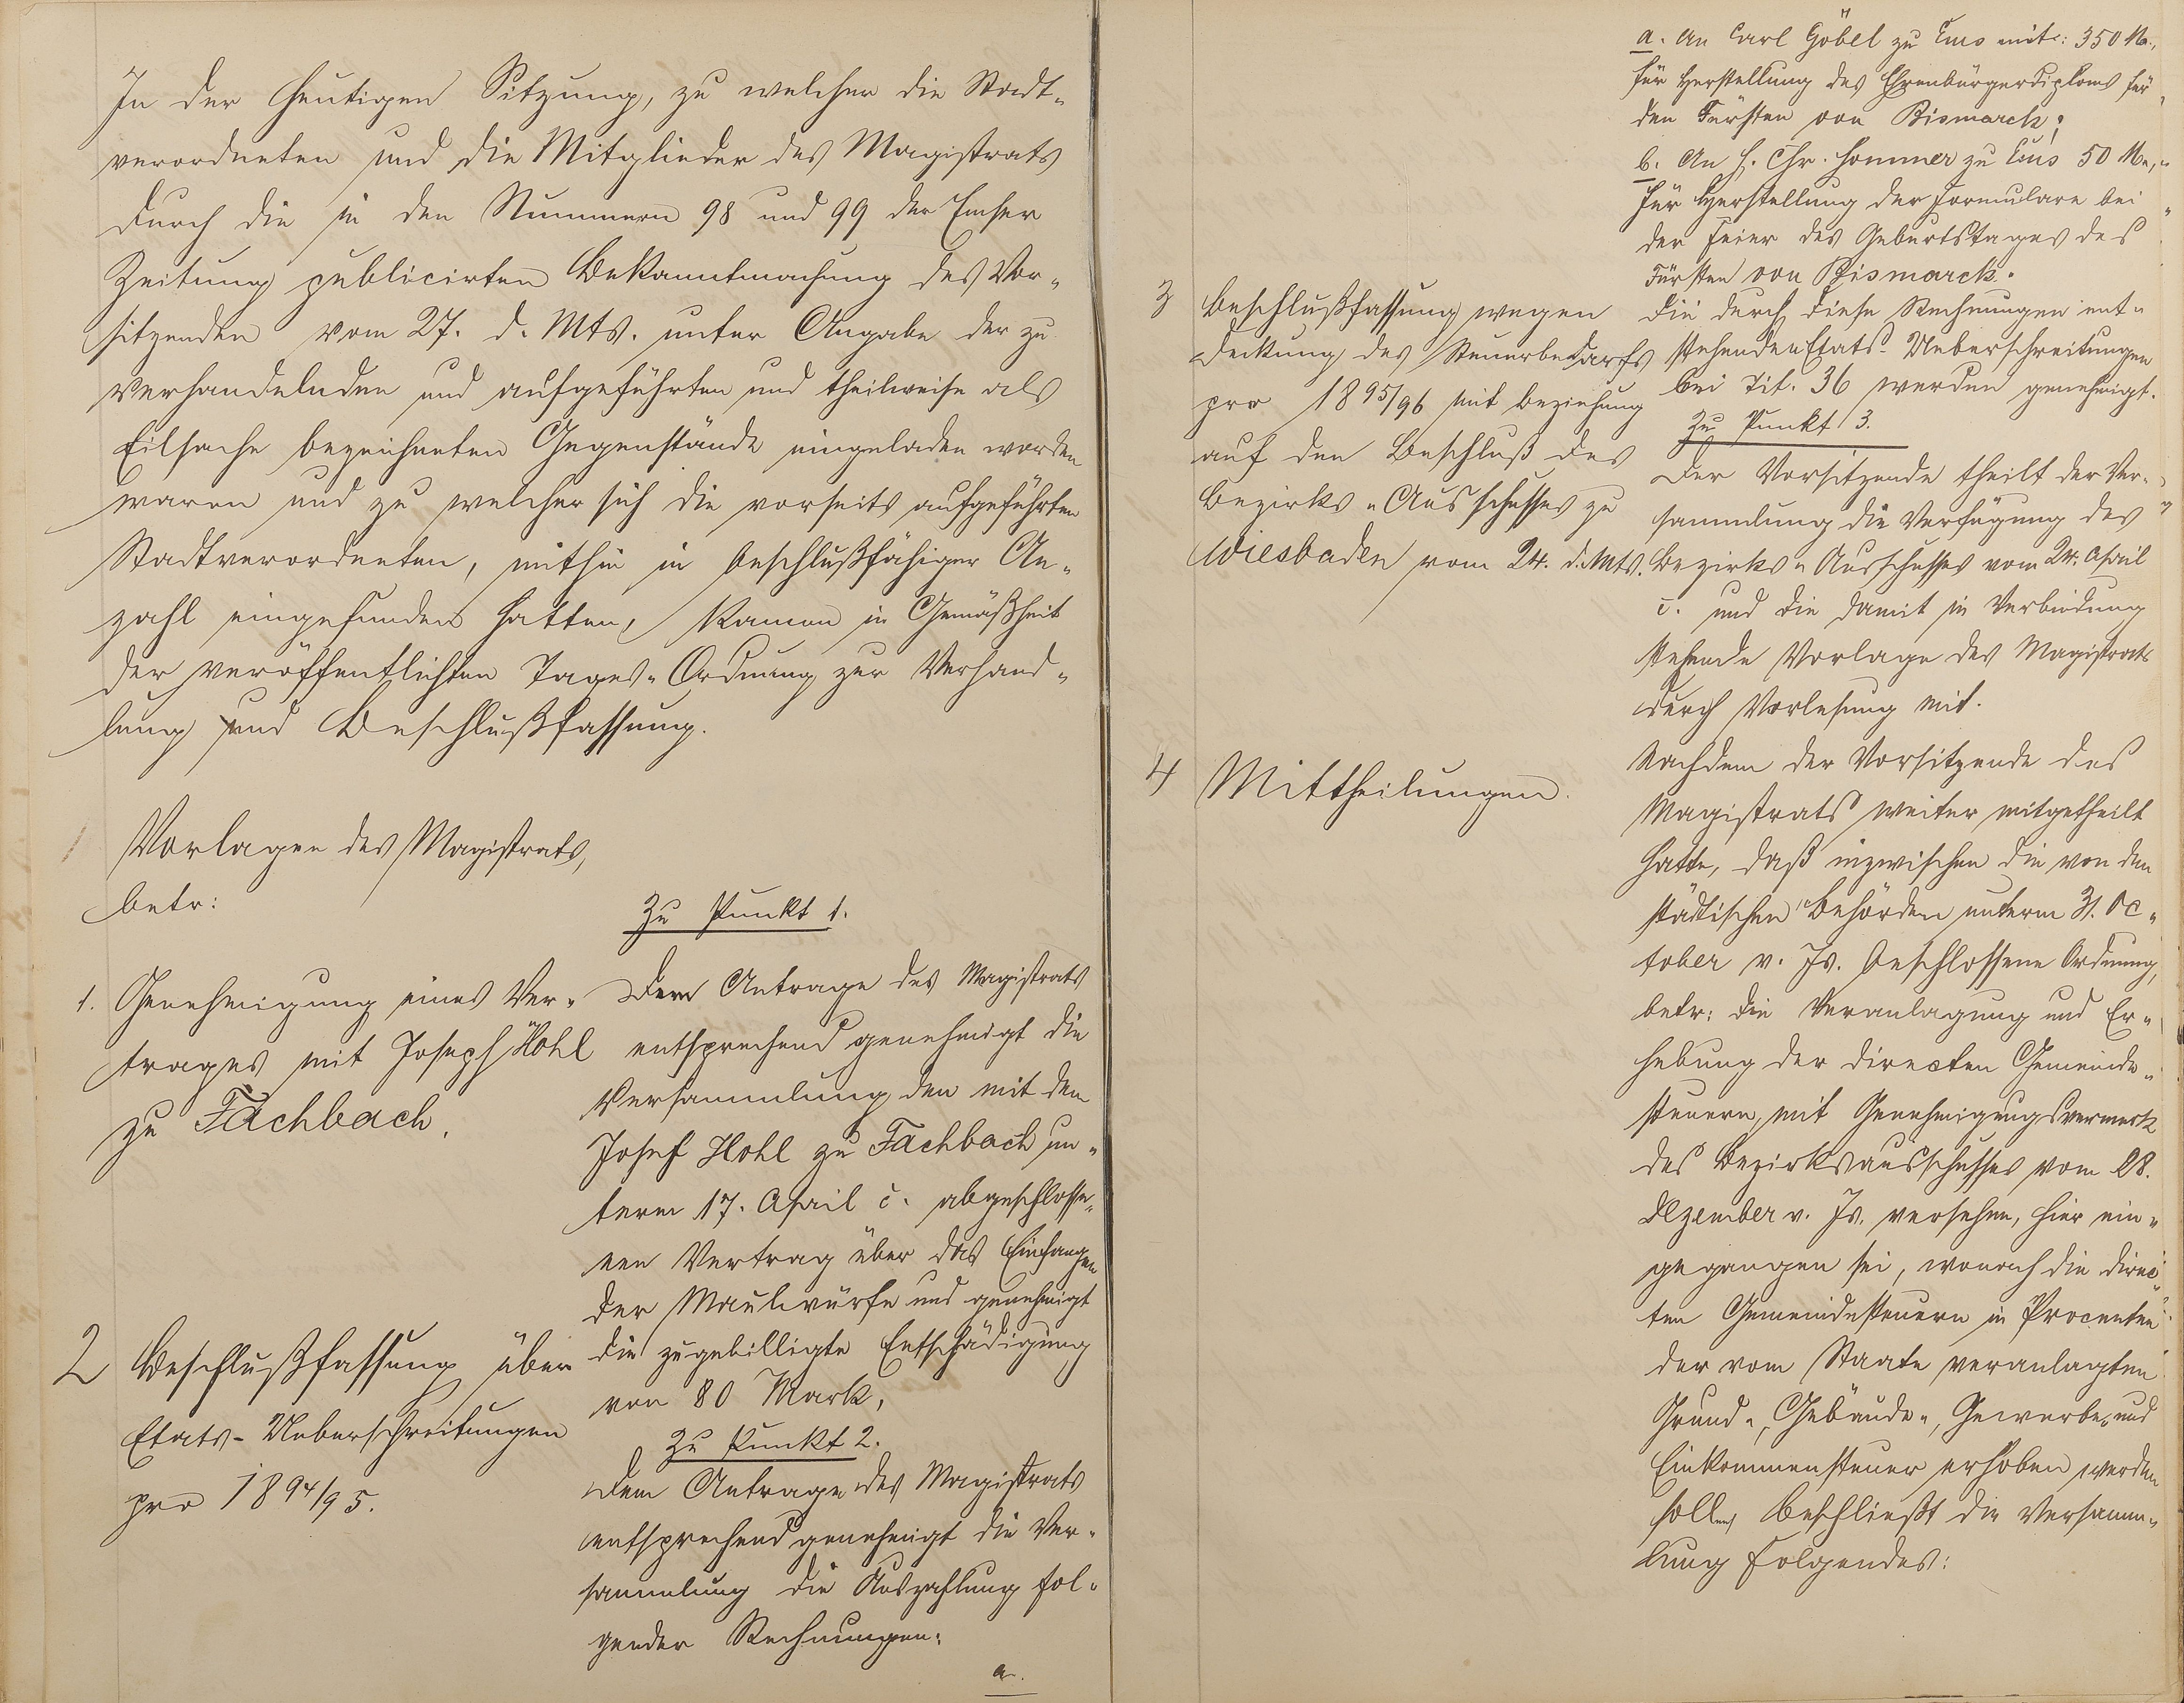 In der heutigen Sitzung, zu welcher die Stadt-
verordneten und die Mitglieder des Magistrats
durch die in den Nummern 98 und 99 der Emser
Zeitung publicirten Bekanntmachung des Vor-
sitzenden vom 27. d. Mts. unter Angabe der zu
verhandelnden und aufgeführten und theilweise als
Eilsache bezeichneten Gegenstände eingeladen worden
waren und zu welcher sich die vorseits aufgeführten
Stadtverordneten, mithin in beschlußfähiger An-
zahl eingefunden hatten, kamen in Gemäßheit
der veröffentlichten Tages-Ordnung zur Verhand-
lung und Beschlußfassung.
Vorlagen des Magistrats,
betr:
1. Genehmigung eines Ver-
trages mit Joseph Hohl
zu Fachbach.
2 Beschlußfassung über
Etats-Ueberschreitungen
pro 1894/95.
Zu Punkt 1.
Dem Antrage des Magistrats
entsprechend genehmigt die
Versammlung den mit dem
Josef Hohl zu Fachbach un-
term 17. April c. abgeschlosse-
nen Vertrag über das Einfangen
der Maulwürfe und genehmigt
die zugebilligte Entschädigung
von 80 Mark.
Zu Punkt 2.
Dem Antrage des Magistrats
entsprechend genehmigt die Ver-
sammlung die Auszahlung fol-
gender Rechnungen:
a.
3 Beschlußfassung wegen
Deckung des Steuerbedarfs
pro 1895/96 mit Beziehung
auf den Beschluß des
Bezirks-Ausschusses zu
Wiesbaden vom 24. d. Mts.
4 Mittheilungen.
a. An Carl Göbel zu Ems mit: 350 M.,
für Herstellung des Ehrenbürgerdiploms für
den Fürsten von Bismarck;
b. An H. Chr. Sommer zu Ems 50 M.,
für Herstellung der Formulare bei
der Feier des Geburtstages des
Fürsten von Bismarck.
Die durch diese Rechnungen ent-
stehenden Etats-Ueberschreitungen
bei Tit. 36 werden genehmigt.
Zu Punkt 3.
Der Vorsitzende theilt der Ver-
sammlung die Verfügung des
Bezirks-Ausschusses vom 24. April
c. und die damit in Verbindung
stehende Vorlage des Magistrats
durch Vorlesung mit.
Nachdem der Vorsitzende des
Magistrats weiter mitgetheilt
hatte, daß inzwischen die von den
städtischen Behörden unterm 31. Oc-
tober v. Js. beschlossene Ordnung,
betr: die Veranlagung und Er-
hebung der directen Gemeinde-
steuern, mit Genehmigungsvermerk
des Bezirksausschusses vom 28.
Dezember v. Js. versehen, hier ein-
gegangen sei, wonach die direc-
ten Gemeindesteuern in Procenten
der vom Staate veranlagten
Grund-, Gebäude-, Gewerbe- und
Einkommensteuer erhoben werden
sollen, beschließt die Versamm-
lung Folgendes: